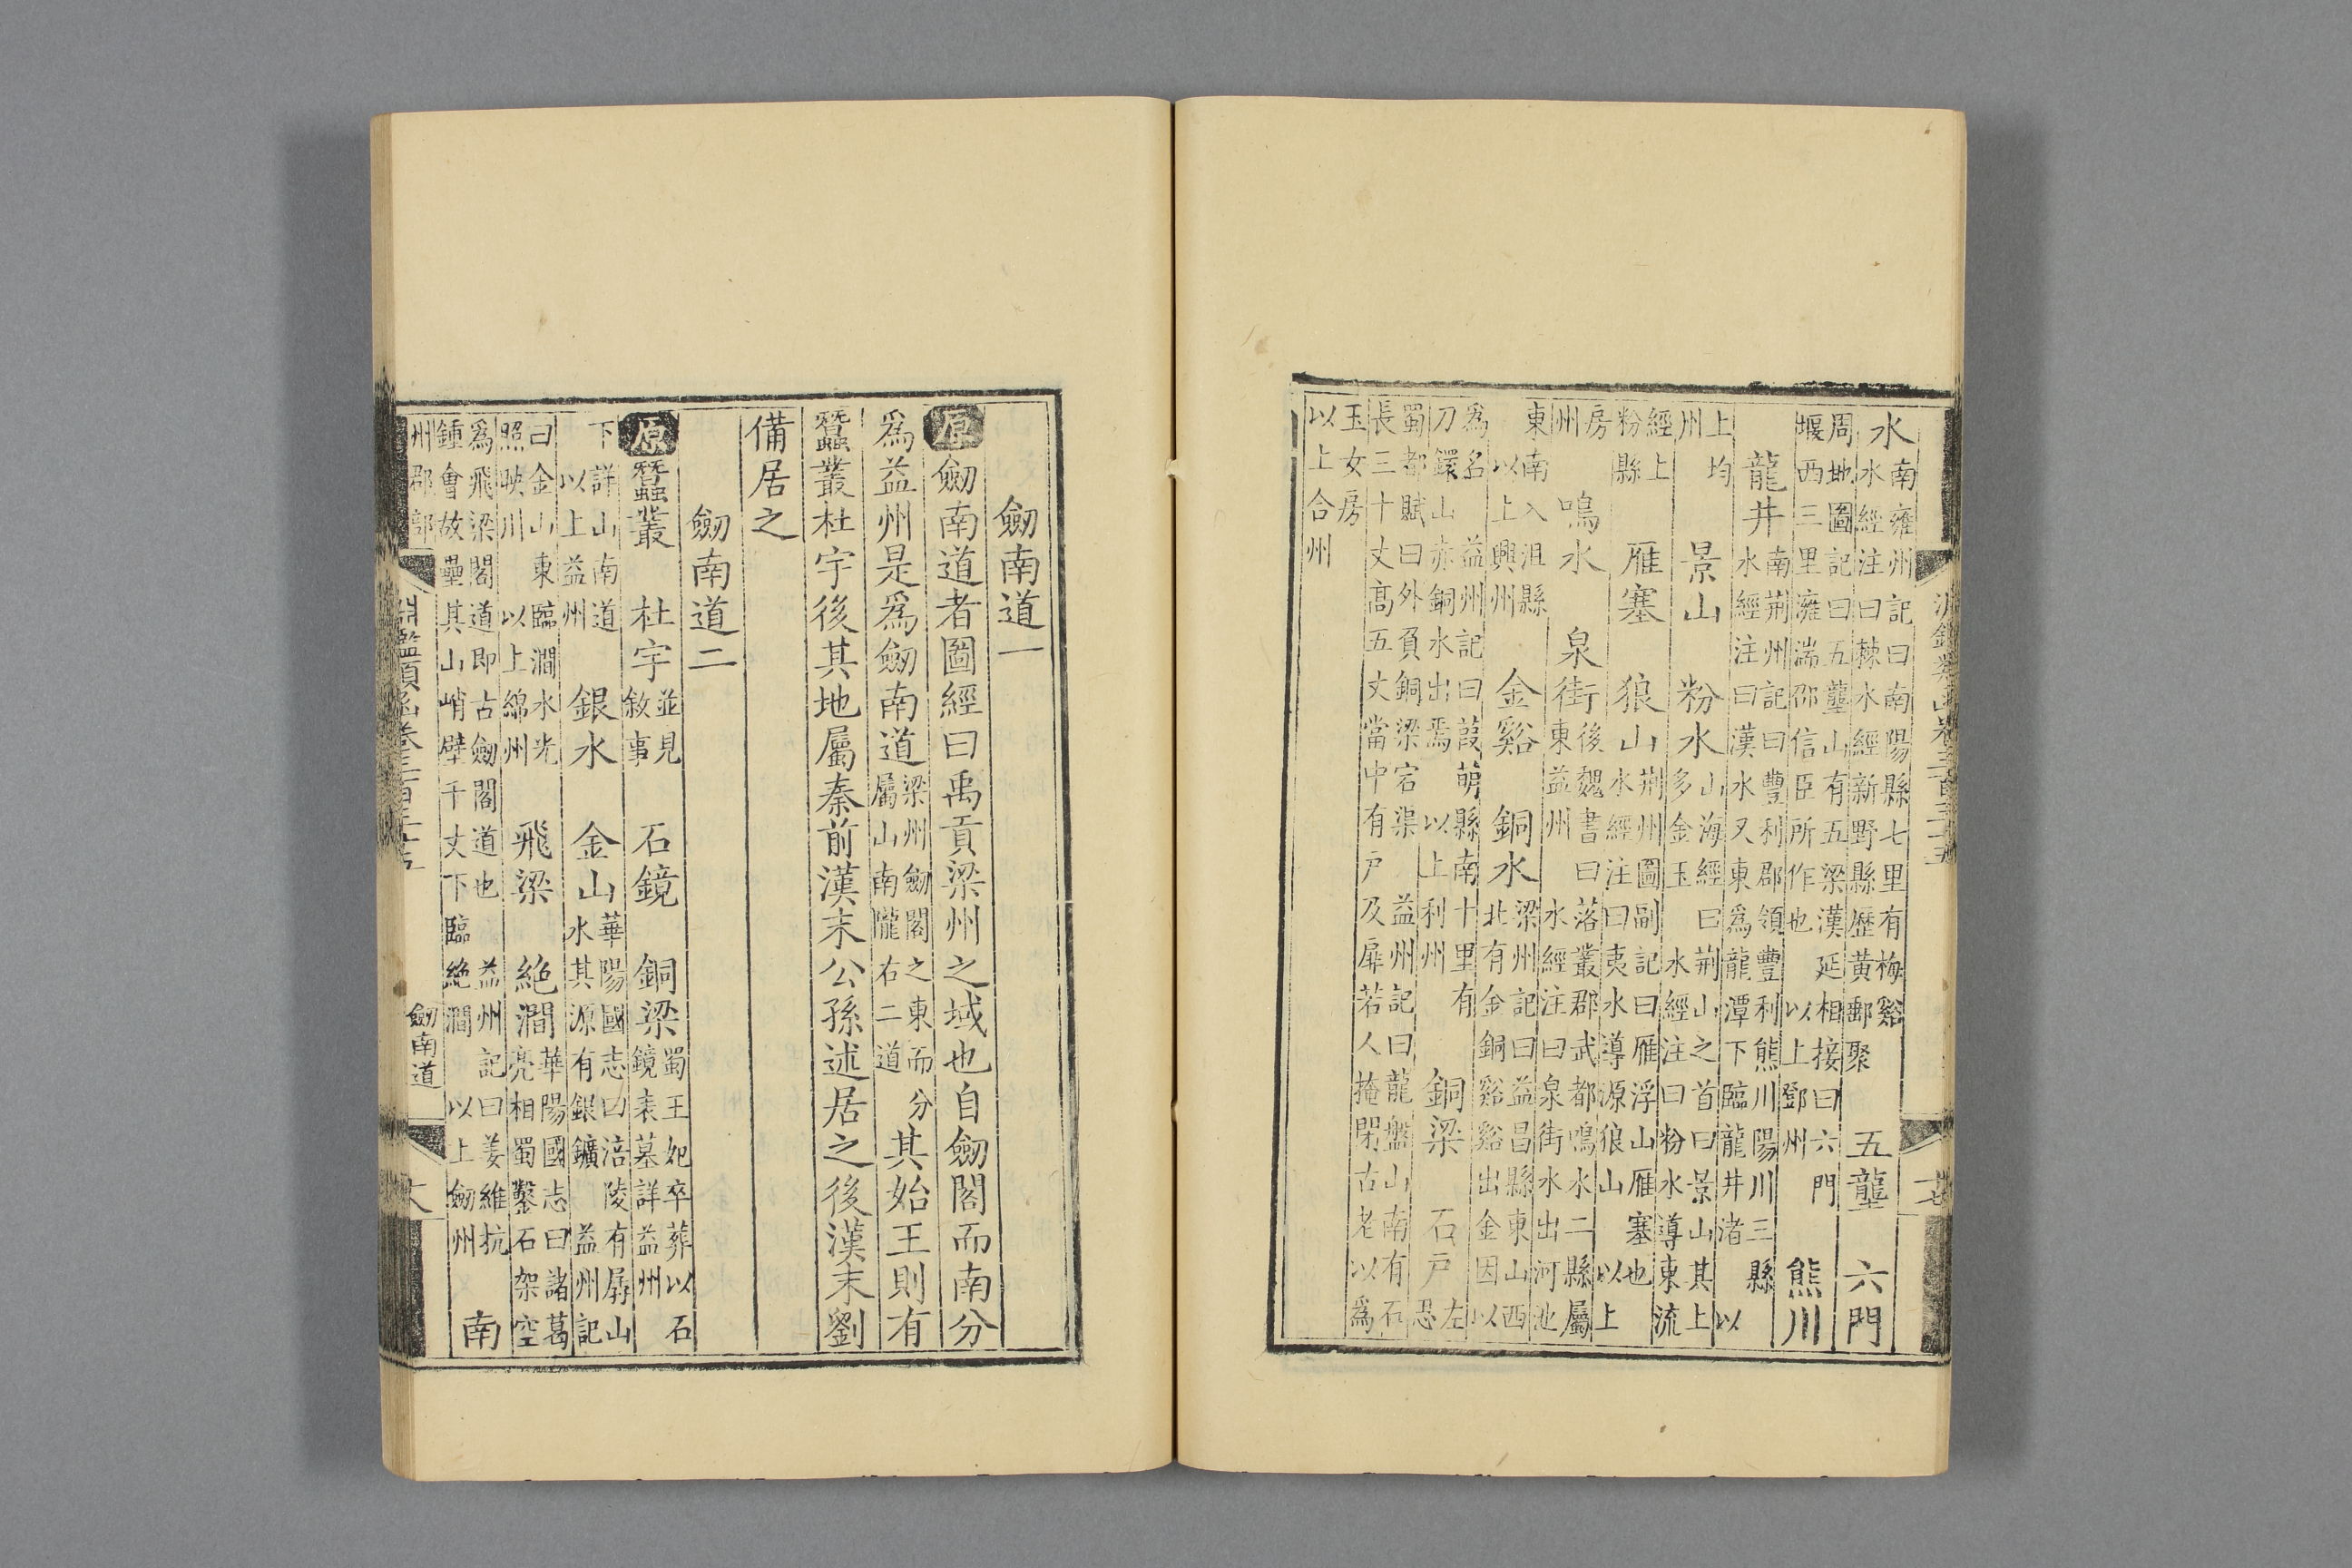 水
南雍州記曰南陽縣七里有梅谿
水經注曰棘水經新野縣歷黃郵聚
五壟　六門
周地圖記曰五壟山有五梁漢延相接曰六門
堰西三里雍湍邵信臣所作也　以上鄧州
熊川
龍井
南荆州記曰豐利郡領豐利熊川陽川三縣
水經注曰漢水又東為龍潭下臨龍井渚　以
上均
州
景山　粉水
山海經曰荆山之首曰景山其上
多金玉　水經注曰粉水導東流
經上
粉縣
雁塞　狼山
荆州圖副記曰雁浮山雁塞也
水經注曰夷水導源狼山　以上
房
州
鳴水　泉街
後魏書曰落叢郡武都鳴水二縣屬
東益州　水經注曰泉街水出河池
東南入沮縣
以上興州
金谿　銅水
梁州記曰益昌縣東山西
北有金銅谿谿出金因以
為名　益州記曰葭萌縣南十里有
刀鐶山亦銅水出焉　以上利州
銅梁　石戶
左
思
蜀都賦曰外負銅梁宕渠　益州記曰龍盤山南有石
長三十丈高五丈當中有戶及扉若人掩閉古老以為
玉女房
以上合州
劒南道一
原劒南道者圖經曰禹貢梁州之域也自劒閣而南分
為益州是為劒南道
梁州劒閣之東而分
屬山南隴右二道
其始王則有
蠶叢杜宇後其地屬秦前漢末公孫述居之後漢末劉
備居之
劒南道二
原蠶叢　杜宇
並見
敘事
石鏡　銅梁
蜀王妃卒葬以石
鏡表墓詳益州
下詳山南道
以上益州
銀水　金山
華陽國志曰涪陵有孱山
水其源有銀鑛　益州記
曰金山東臨澗水光
照映川　以上綿州
飛梁　絶澗
華陽國志曰諸葛
亮相蜀鑿石架空
為飛梁閣道即古劒閣道也　益州記曰姜維抗
鍾會故壘其山峭壁千丈下臨絶澗　以上劒州
南
州郡部
淵鑑類函卷三百三十五
劒南道